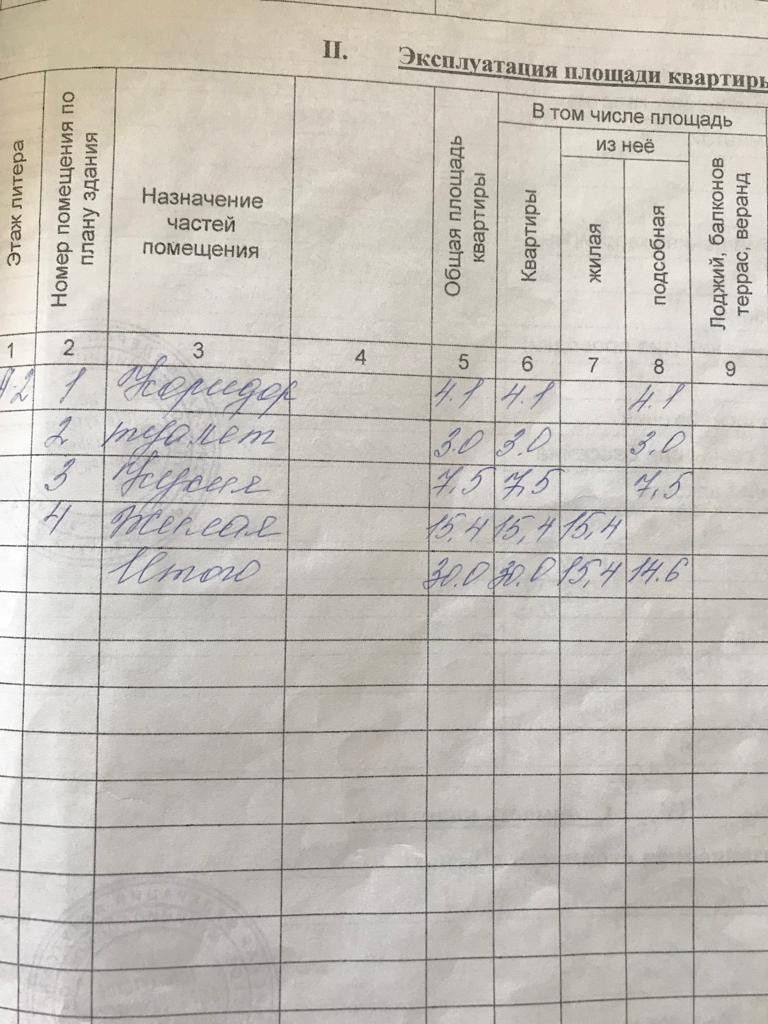 II. Эксплуатация площади квартиры
Этаж литера
Номер помещения по плану здания
Назначение частей помещения
Общая площадь квартиры
В том числе площадь
Квартиры
из неё
жилая
подсобная
Лоджий, балконов террас, веранд
1 2 3 4 5 6 7 8 9
1 Коридор 4.1 4.1 4.1
2 туалет 3.0 3.0 3.0
3 Кухня 7,5 7,5 7,5
4 Жилая 15,4 15,4 15,4
Итого 30.0 30.0 15,4 14.6